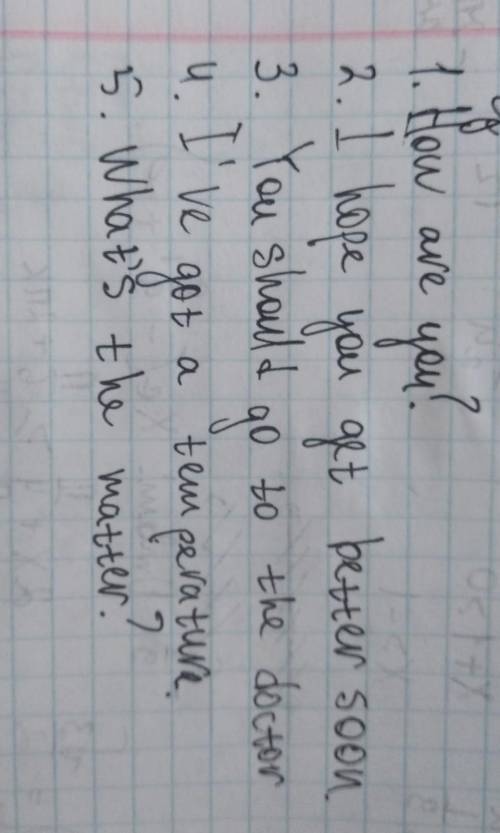 1. How are you?
2. I hope you get better soon.
3. You should go to the doctor
4. I've got a temperature.
5. What's the matter?